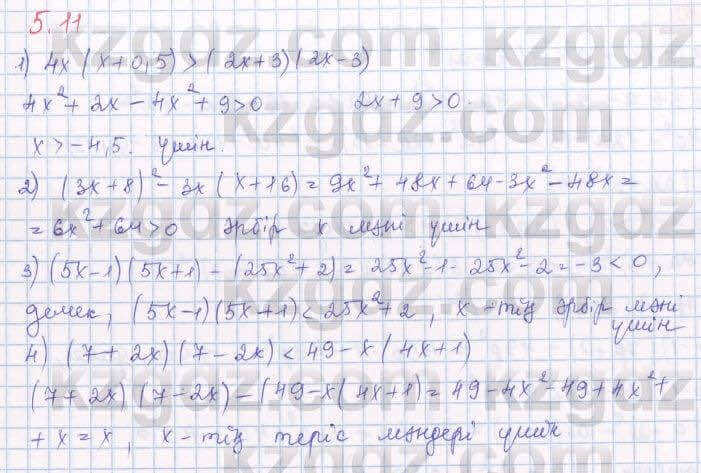 5.11
1) 4x(x+0,5)>(2x+3)(2x-3)
4x²+2x-4x²+9>0 2x+9>0.
x>-4,5. үшін.
2) (3x+8)²-3x(x+16)=9x²+48x+64-3x²-48x=
=6x²+64>0 әрбір x мәні үшін
3) (5x-1)(5x+1)-(25x²+2)=25x²-1-25x²-2=-3<0,
демек, (5x-1)(5x+1)<25x²+2, x-тің әрбір мәні
үшін
4) (7+2x)(7-2x)<49-x(4x+1)
(7+2x)(7-2x)-(49-x(4x+1)=49-4x²-49+4x²+
+x=x, x-тің теріс мәндері үшін
kzgdz.com kzgdz
kzgdz.com
kzgdz.com kzgdz
kzgdz.com
kzgdz.com kzgdz